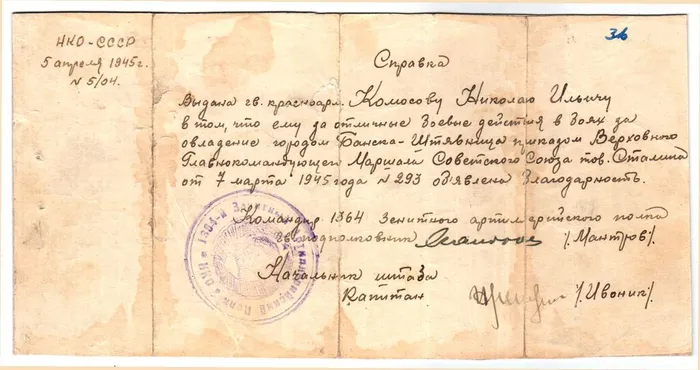 36
НКО-СССР
5 апреля 1945г.
N 5/04.
Справка
Выдана гв. красноарм. Комосову Николаю Ильичу
в том, что ему за отличные боевые действия в боях за
овладение городом Банска-Штявница приказом Верховного
Главнокомандующего Маршала Советского Союза тов. Сталина
от 7 марта 1945 года N 293 объявлена Благодарность.
Командир 1364 зенитного артиллерийского полка
гв. подполковник /Мантров/.
Начальник штаба
Капитан /Ивоник/.